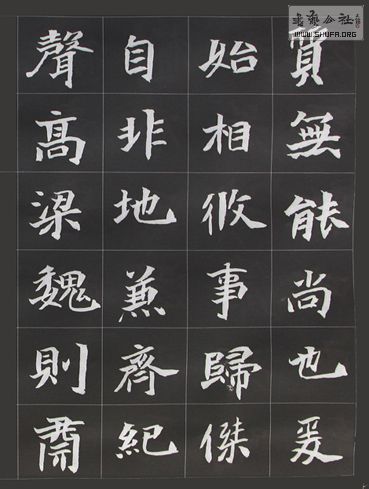 質無能尚也爰
始相攸事歸傑
自非地兼齊紀
聲高梁魏則
書藝公社
WWW.SHUFA.ORG